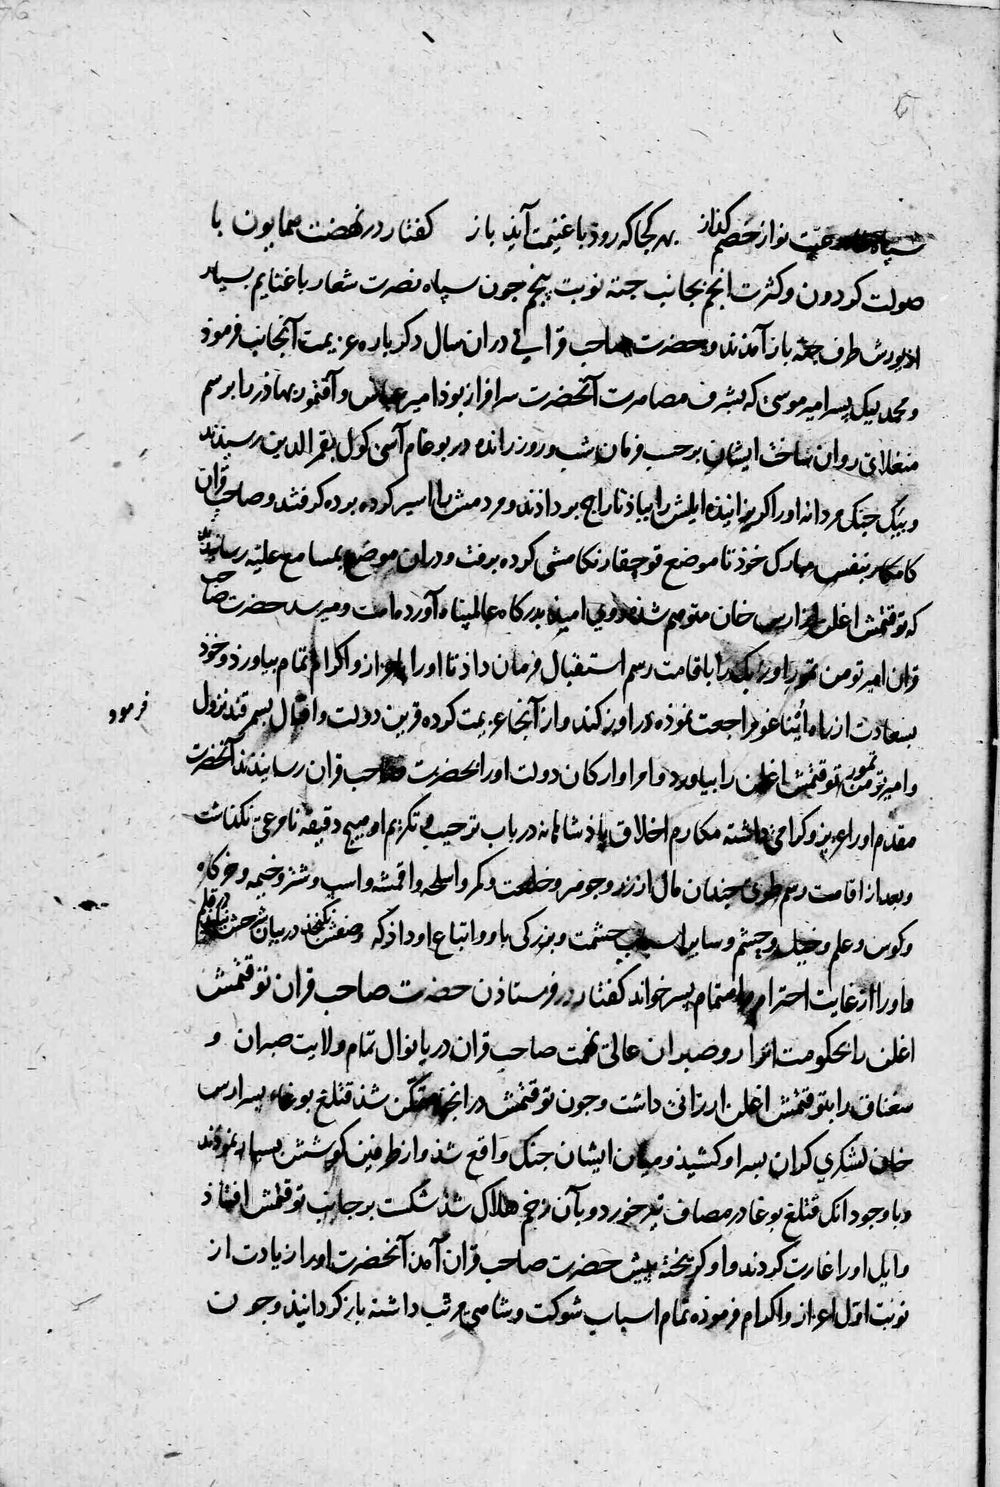 سپاه محبت نواز خصم کداز بهر کجا که روذ با غنیمت آید باز کفتار در نهضت همایون با
صولت کردون و کثرت انجم بجانب جته نوبت پنجم جون سپاه نصرت شعار با غنایم بسیار
از یورش طرف جته باز آمدند و حضرت صاحب قرانی دران سال دکر باره عزیمت آنجانب فرموذ
و محمد بیک پسر امیر موسی که بشرف مصاهرت آنحضرت سرافراز بوذ امیر عباس و آقتمور بهاذر را برسم
منغلای روان ساخت ایشان بر حسب فرمان شب و روز رانده در بوغام آسی کول بقمر الدین رسیذند
و بیک جنک مردانه اورا کریزانیذه ایلش را بباذ تاراج بر داذند و مردمش را اسیر کرده برده کرفتند و صاحب قران
کامکار بنفس مبارک خوذ تا موضع قوجقار تکامشی کرده برفت و دران موضع بمسامع علیه رسانیذند
که توقتمش اغلن از ارس خان متوهم شذه روی امیذ بدرکاه عالمپناه آورده است و میرسد حضرت صاحب
قران امیر تومن تمور اوزبک را باقامت رسم استقبال فرمان داذ تا اورا باعزاز و اکرام تمام بیاورذ و خوذ
بسعادت از راه اُیناغو مراجعت نموذه در اوزکند و از آنجا عزیمت کرده قرین دولت و اقبال بسمرقند نزول
فرمود
و امیر تومن تمور توقتمش اغلن را بیاورد و امرا و ارکان دولت اورا بحضرت صاحب قران رسانیذند آنحضرت
مقدم اورا عزیز و کرامی داشته مکارم اخلاق پاذشاهانه در باب ترحیب و تکریم او هیچ دقیقه نامرعی نکذاشت
و بعد از اقامت رسم طوی جندان مال از زر و جوهر و خلعت و کمر و اسلحه و اقمشه و اسب و شتر و خیمه و خرکاه
و کوس و علم و خیل و حشم و سایر اسباب حشمت و بزرکی باو و اتباع او داذ که وصفش نکنجذ در بیان شرحش نیایذ در قلم
و اورا از غایت احترام و اهتمام پسر خواند کفتار در فرستاذن حضرت صاحب قران توقتمش
اغلن را بحکومت اترار و صبران عالی نهمت صاحب قران دریا نوال تمام ولایت صبران و
سغناق را بتوقتمش اغلن ارزانی داشت و جون توقتمش در آنجا متمکن شذ قتلغ بوغا پسر ارس
خان لشکری کران بسر او کشیذ و میان ایشان جنک واقع شذ و از طرفین کوشش بسیار نموذند
و با وجود آنک قتلغ بوغا در مصاف تیر خورد و بآن زخم هلاک شذ شکست بر جانب توقتمش افتاذ
و ایل اورا غارت کردند و او کریخته پیش حضرت صاحب قران آمذ آنحضرت اورا زیادت از
نوبت اول اعزاز و اکرام فرموذه تمام اسباب شوکت و شاهی مرتب داشته باز کردانیذ و جون